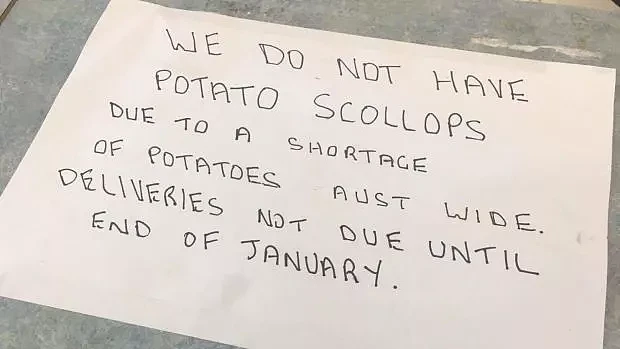 WE DO NOT HAVE
POTATO SCOLLOPS
DUE TO A SHORTAGE
OF POTATOES AUST WIDE.
DELIVERIES NOT DUE UNTIL
END OF JANUARY.